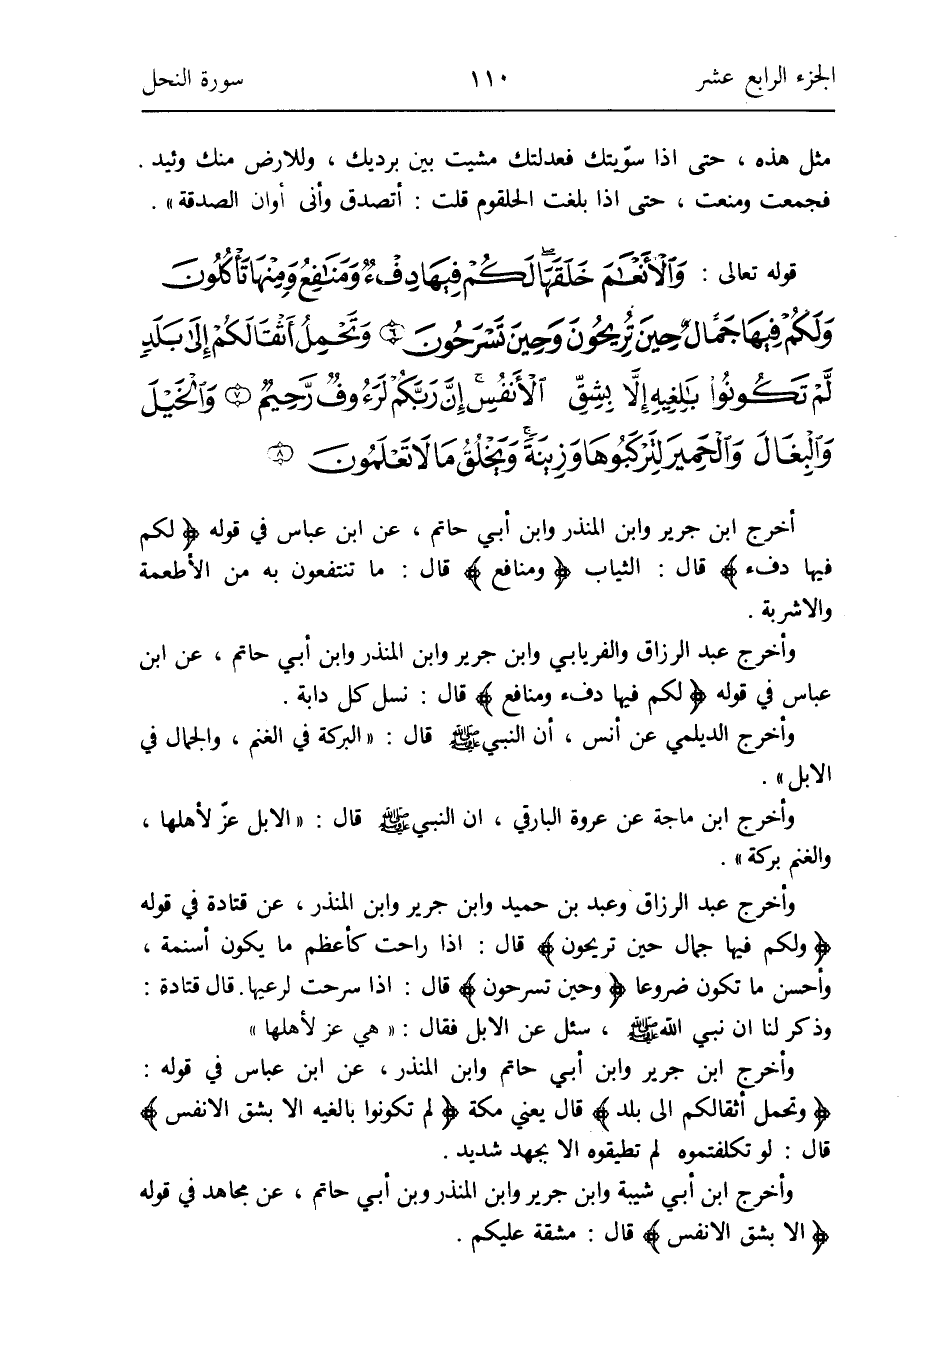 الجزء الرابع عشر ١١٠ سورة النحل
مثل هذه ، حتى اذا سوّيتك فعدلتك مشيت بين برديك ، وللارض منك وئيد .
فجمعت ومنعت ، حتى اذا بلغت الحلقوم قلت : أتصدق وأنى أوان الصدقة» .
قوله تعالى : وَٱلْأَنْعَٰمَ خَلَقَهَاۖ لَكُمْ فِيهَا دِفْءٌ وَمَنَٰفِعُ وَمِنْهَا تَأْكُلُونَ
وَلَكُمْ فِيهَا جَمَالٌ حِينَ تُرِيحُونَ وَحِينَ تَسْرَحُونَ ﴿٦﴾ وَتَحْمِلُ أَثْقَالَكُمْ إِلَىٰ بَلَدٍ
لَّمْ تَكُونُوا۟ بَٰلِغِيهِ إِلَّا بِشِقِّ ٱلْأَنفُسِۚ إِنَّ رَبَّكُمْ لَرَءُوفٌ رَّحِيمٌ ﴿٧﴾ وَٱلْخَيْلَ
وَٱلْبِغَالَ وَٱلْحَمِيرَ لِتَرْكَبُوهَا وَزِينَةًۚ وَيَخْلُقُ مَا لَا تَعْلَمُونَ ﴿٨﴾
أخرج ابن جرير وابن المنذر وابن أبي حاتم ، عن ابن عباس في قوله ﴿ لكم
فيها دفء ﴾ قال : الثياب ﴿ ومنافع ﴾ قال : ما تنتفعون به من الأطعمة
والاشربة .
وأخرج عبد الرزاق والفريابي وابن جرير وابن المنذر وابن أبي حاتم ، عن ابن
عباس في قوله ﴿ لكم فيها دفء ومنافع ﴾ قال : نسل كل دابة .
وأخرج الديلمي عن أنس ، أن النبي ﷺ قال : «البركة في الغنم ، والجمال في
الابل» .
وأخرج ابن ماجة عن عروة البارقي ، ان النبي ﷺ قال : «الابل عزّ لأهلها ،
والغنم بركة» .
وأخرج عبد الرزاق وعبد بن حميد وابن جرير وابن المنذر ، عن قتادة في قوله
﴿ ولكم فيها جمال حين تريحون ﴾ قال : اذا راحت كأعظم ما يكون أسنمة ،
وأحسن ما تكون ضروعا ﴿ وحين تسرحون ﴾ قال : اذا سرحت لرعيها. قال قتادة :
وذكر لنا ان نبي الله ﷺ ، سئل عن الابل فقال : « هي عز لأهلها »
وأخرج ابن جرير وابن أبي حاتم وابن المنذر ، عن ابن عباس في قوله :
﴿ وتحمل أثقالكم الى بلد ﴾ قال يعني مكة ﴿ لم تكونوا بالغيه الا بشق الانفس ﴾
قال : لو تكلفتموه لم تطيقوه الا بجهد شديد .
وأخرج ابن أبي شيبة وابن جرير وابن المنذر وبن أبي حاتم ، عن مجاهد في قوله
﴿ الا بشق الانفس ﴾ قال : مشقة عليكم .